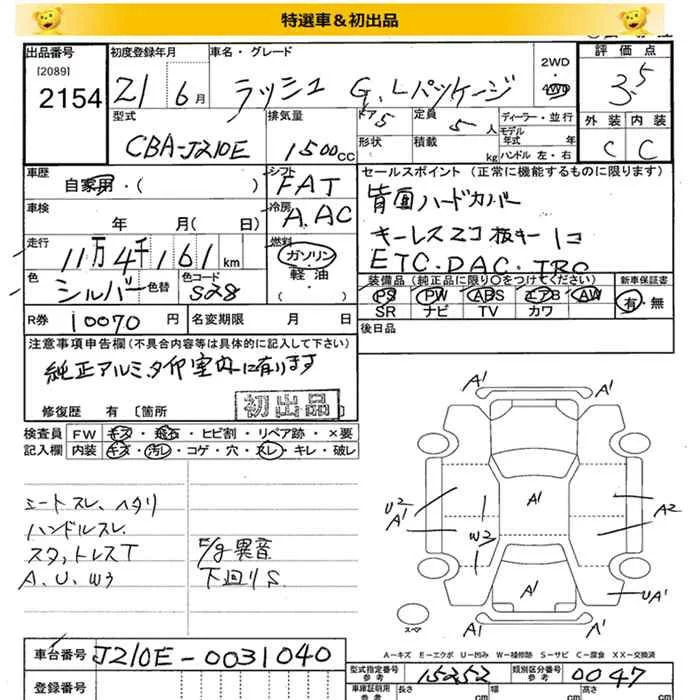 特選車＆初出品
出品番号
[2089]
2154
初度登録年月
21 6月
車名・グレード
ラッシュ G.Lパッケージ
2WD
・
4WD
評価点
3.5
外装 内装
C C
型式
CBA-J210E
排気量
1500cc
ドア 5
形状
定員 5人
積載 kg
ディーラー・並行
モデル年式 年
ハンドル 左・右
車歴
自家用・( )
シフト
FAT
セールスポイント (正常に機能するものに限ります)
背面ハードカバー
キーレス2コ 板キー1コ
ETC.DAC.TRC
車検
年 月( 日)
冷房
A.AC
走行
11万4千161km
燃料
ガソリン
軽・油
( ・ )
色
シルバー
色替
色コード
S28
装備品 (純正品に限り○をつけてください)
PS PW ABS エアB AW
SR ナビ TV カワ
新車保証書
有・無
R券 10070円
名変期限 月 日
後日品
注意事項申告欄(不具合内容等は具体的に記入して下さい)
純正アルミ、タイヤ室内に有ります
修復歴 有〔箇所
初出品
検査員 FW キズ・飛石・ヒビ割・リペア跡・×要
記入欄 内装 キズ・汚レ・コゲ・穴・スレ・キレ・破レ
シートスレ、ヘタリ
ハンドルスレ
スタットレスT
A、U、W3
F/g異音
下回りS
A1
A1
U2
A1
W3
A2
A1
UA1
A1
A1
スペア
A－キズ E－エクボ U－凹み W－補修跡 S－サビ C－腐食 XX－交換済
車台番号 J210E-0031040
型式指定番号 参考 15252
類別区分番号 参考 0047
登録番号
車庫証明用 参考
長さ cm
幅 cm
高さ cm